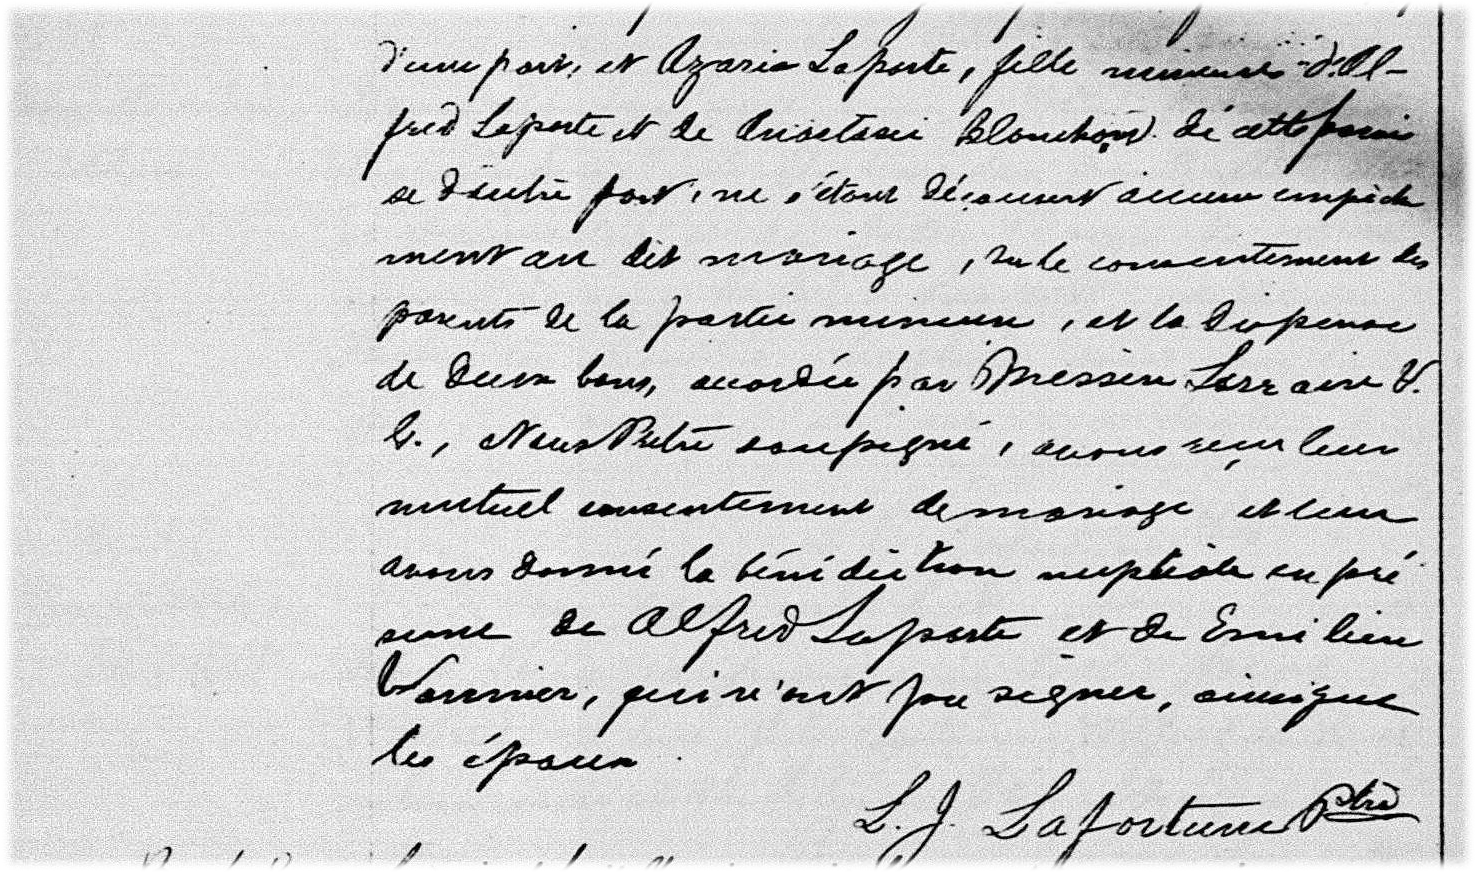 d'une part, et Azarie Laporte, fille mineure d'Al-
fred Laporte et de Anastasie Blanchard de cette parois
se d'autre part, ne s'étant découvert aucun empêche
ment au dit mariage, sur le consentement des
parents de la partie mineure, et la dispense
de deux bans, accordée par Messire Lorrain V.
G., Nous Prêtre soussigné, avons reçu leur
mutuel consentement de mariage et leur
avons donné la bénédiction nuptiale en pré
sence de Alfred Laporte et de Emilien
qui n'ont pu signer, ainsi que
les époux.
L. J. Lafortune Ptre